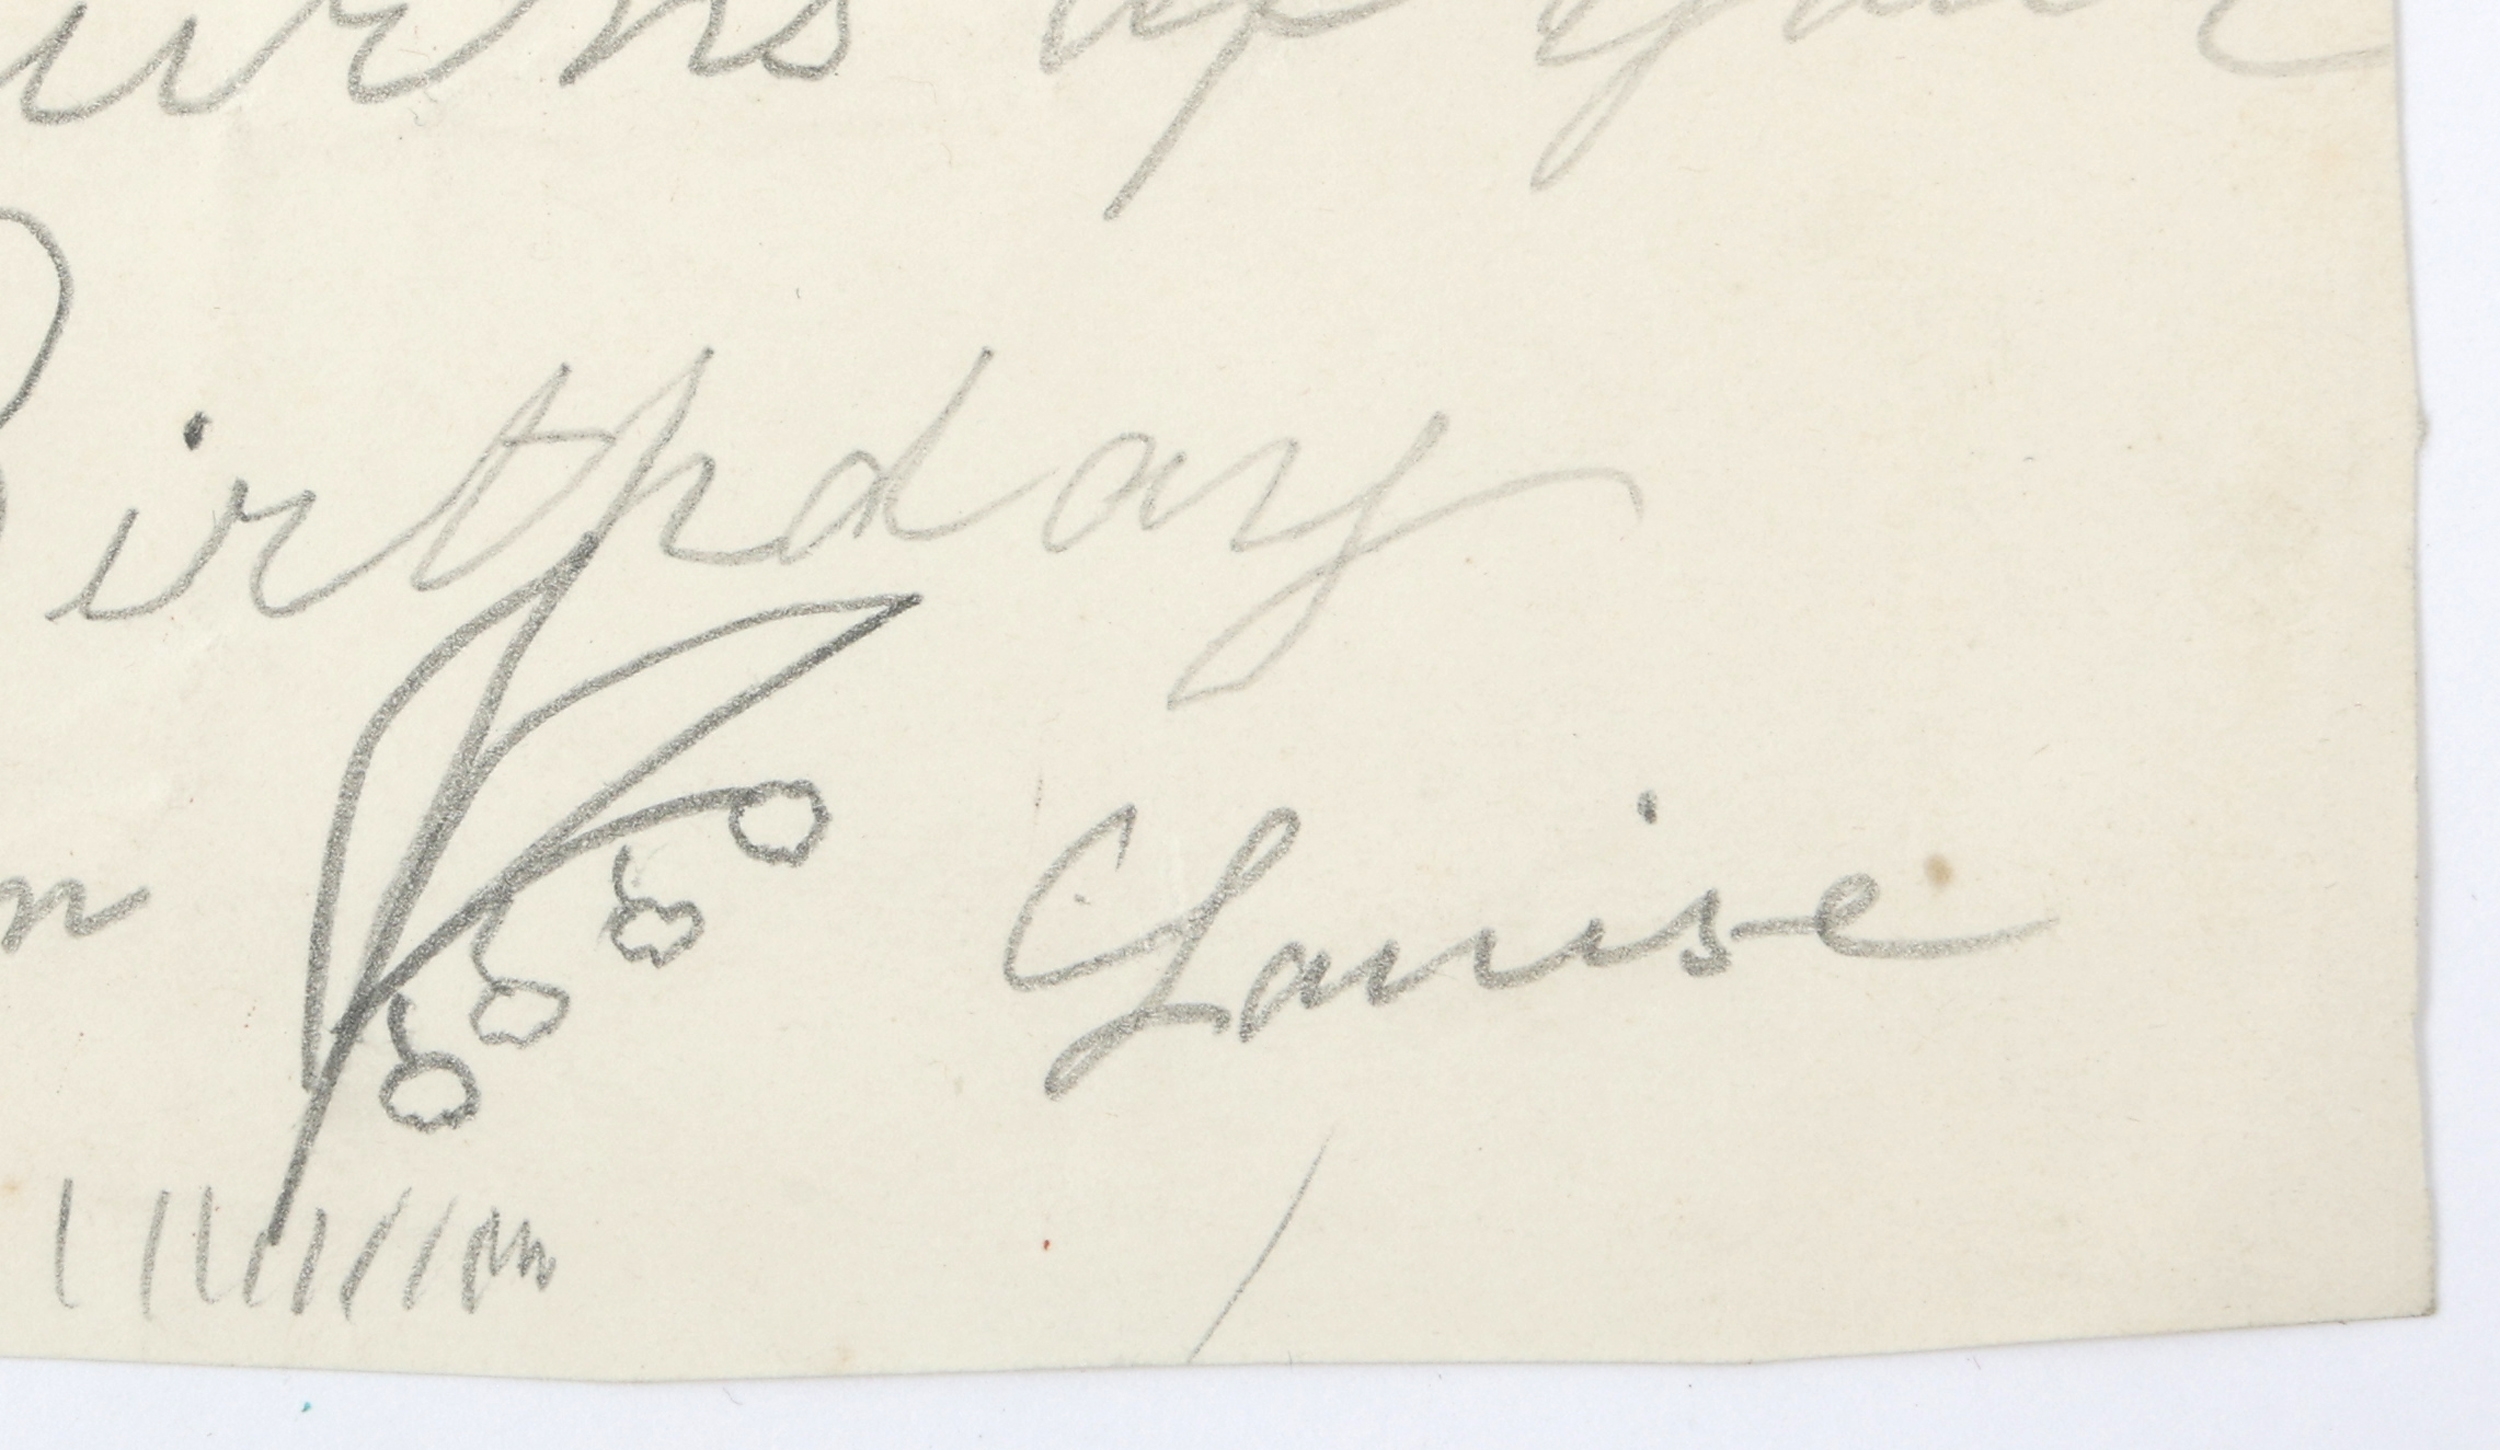 urns of your
Birthday
n Louise